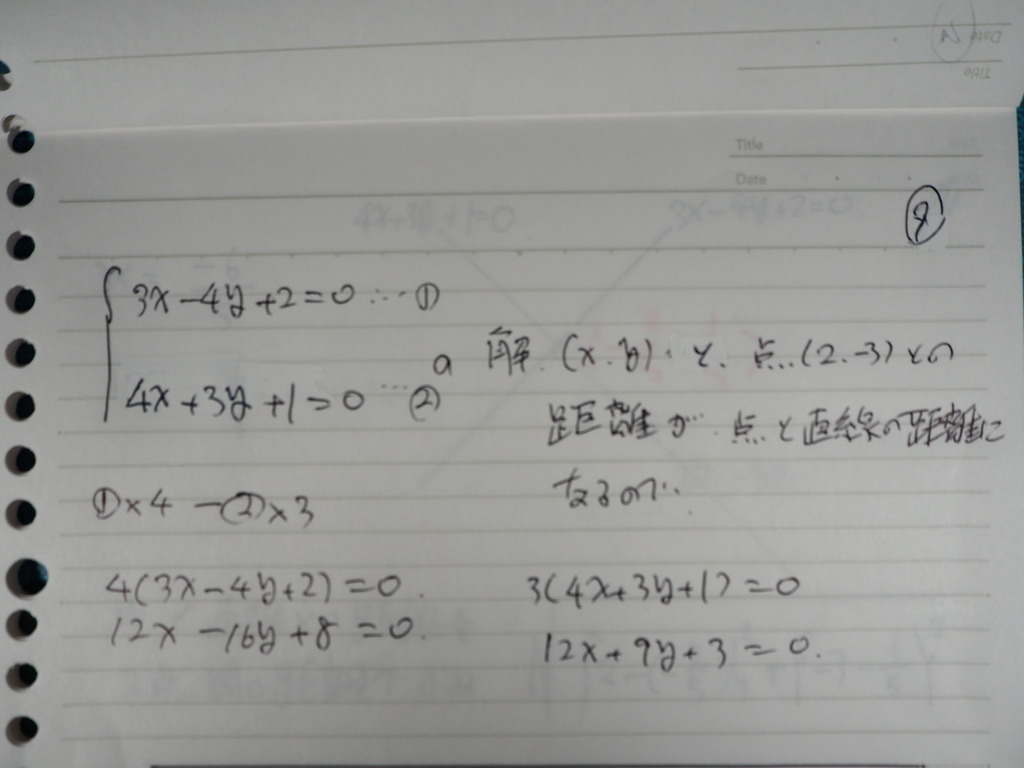 Title
Date
⑧
3x-4y+2=0 … ①
4x+3y+1=0 … ②
の 解 (x.y) と、点 (2.-3) との
距離が 点と直線の距離に
なるので
①×4 -②×3
4(3x-4y+2)=0.
12x-16y+8=0.
3(4x+3y+1)=0
12x+9y+3=0.